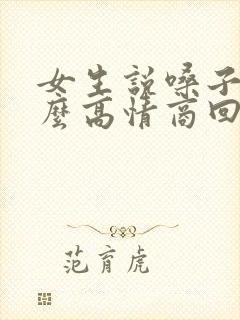 女生说嗓子
麽高情商回
范育虎